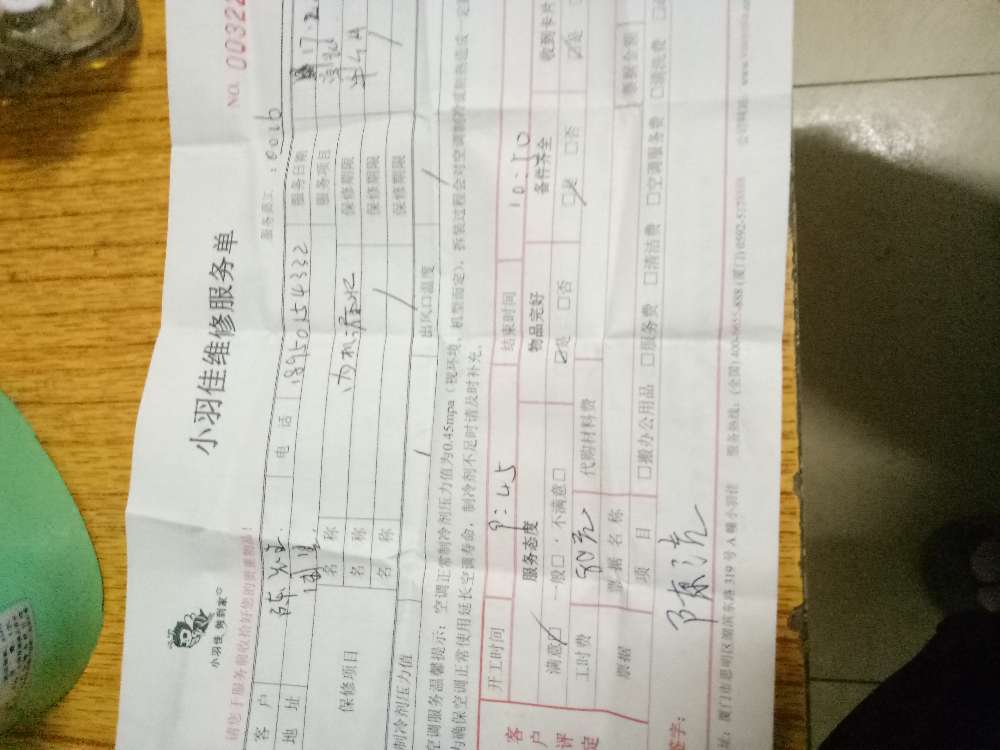 NO. 00322
小羽佳维修服务单
小羽佳 倾到家
请您于服务前收拾好您的贵重物品！
服务员工：0016
客户 电话 18950154332 服务日期 17.2
地址 服务项目
保修项目 名称 内机漏水 保修期限
名称 保修期限
名称 保修期限
制冷剂压力值 / 出风口温度 /
空调服务温馨提示：空调正常制冷剂压力值为0.45mpa（视环境、机型而定），拆装过程会对空调制冷或制热造成一定
为确保空调正常使用延长空调寿命，制冷剂不足时请及时补充。
开工时间 9:45 结束时间 10:50
客户评定 服务态度 物品完好 备件齐全 收到卡片
满意□ 一般□ 不满意□ □是 □否 □是 □否 □是
工时费 80元 代购材料费
票据 票据名称 票据金额
项目 □搬办公用品 □服务费 □清洁费 □空调服务费 □清洗费
签字：
址：厦门市思明区湖滨东路319号A幢小羽佳 服务热线：(全国) (厦门) 公司网站：